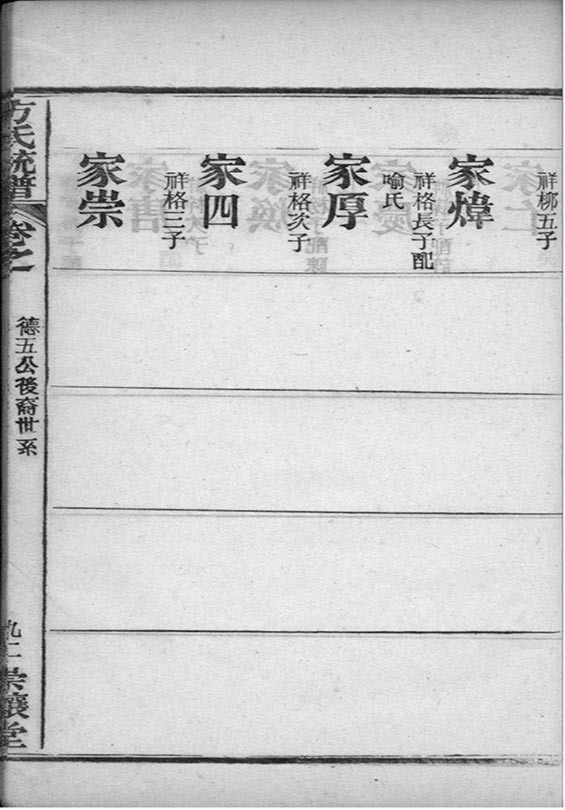 祥柳五子
家煒
祥格長子配
喻氏
家厚
祥格次子
家四
祥格三子
家崇
方氏統譜
卷之
德五公後裔世系
九二
崇讓堂